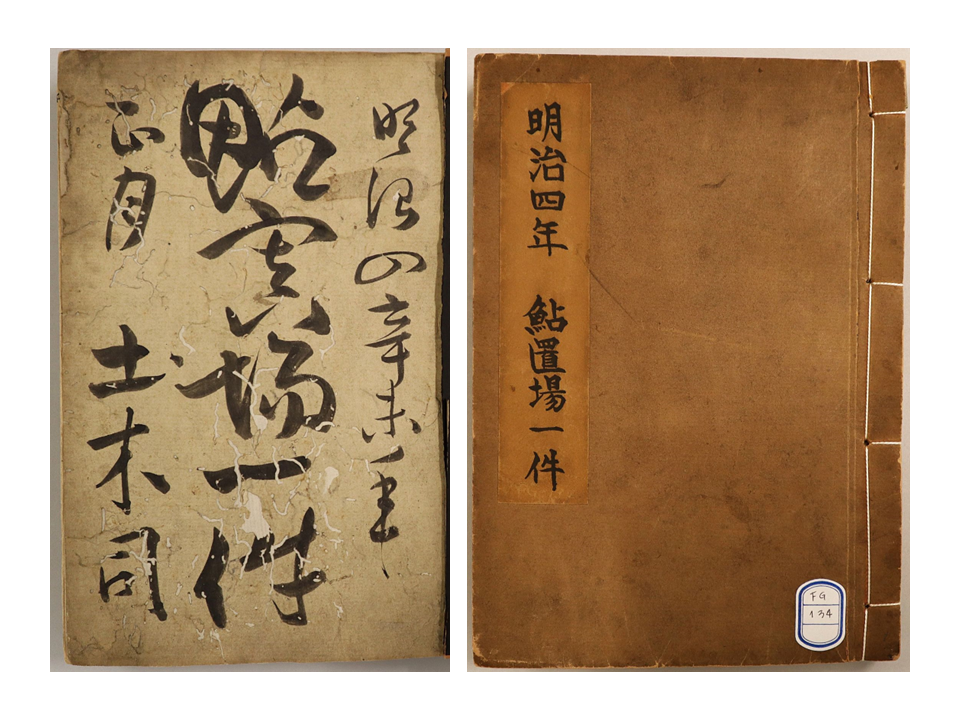 明治四辛未年
鮎置場一件
正月 土木司
明治四年 鮎置場一件
FG
134